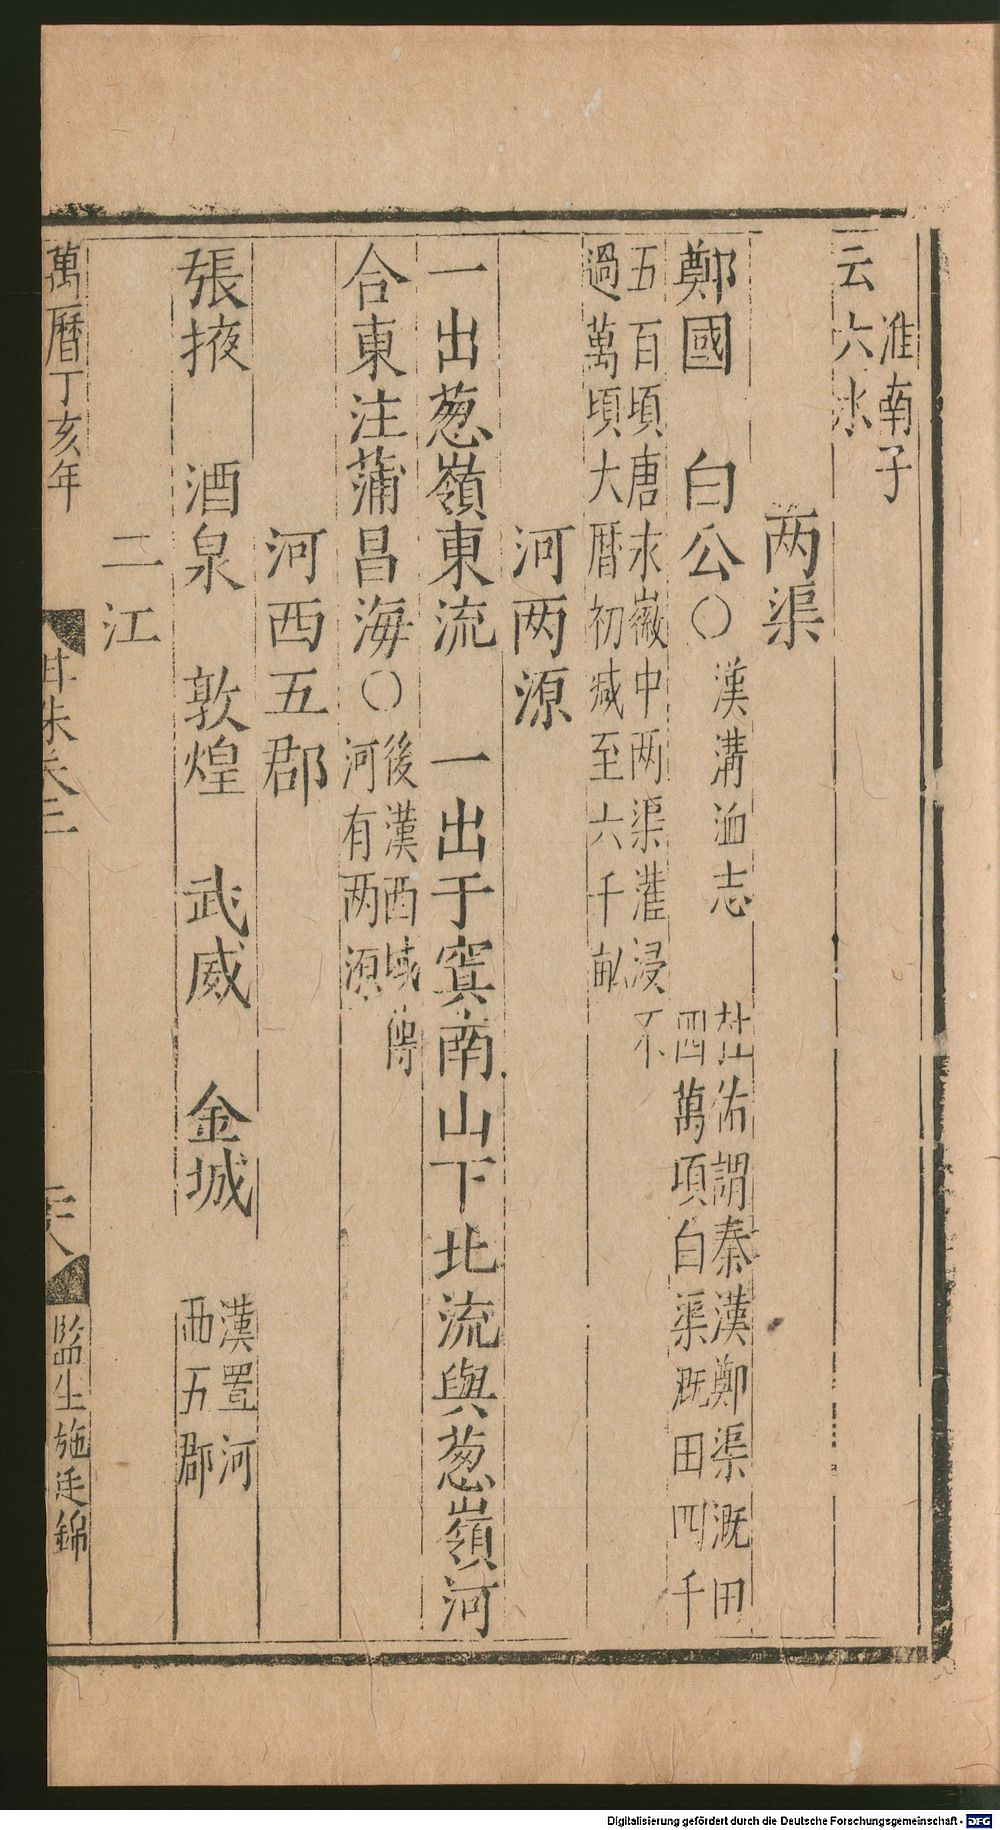 淮南子
云六水
两渠
鄭國　白公○漢溝洫志　杜佑謂秦漢鄭渠溉田
四萬頃白渠溉田四千
五百頃唐永徽中两渠灌浸不
過萬頃大曆初减至六千畝
河两源
一出葱嶺東流　一出于窴南山下北流與葱嶺河
合東注蒲昌海○後漢西域傳
河有两源
河西五郡
張掖　酒泉　敦煌　武威　金城　漢置河
西五郡
二江
萬曆丁亥年
卷三
監生施廷錦
Digitalisierung gefördert durch die Deutsche Forschungsgemeinschaft - DFG